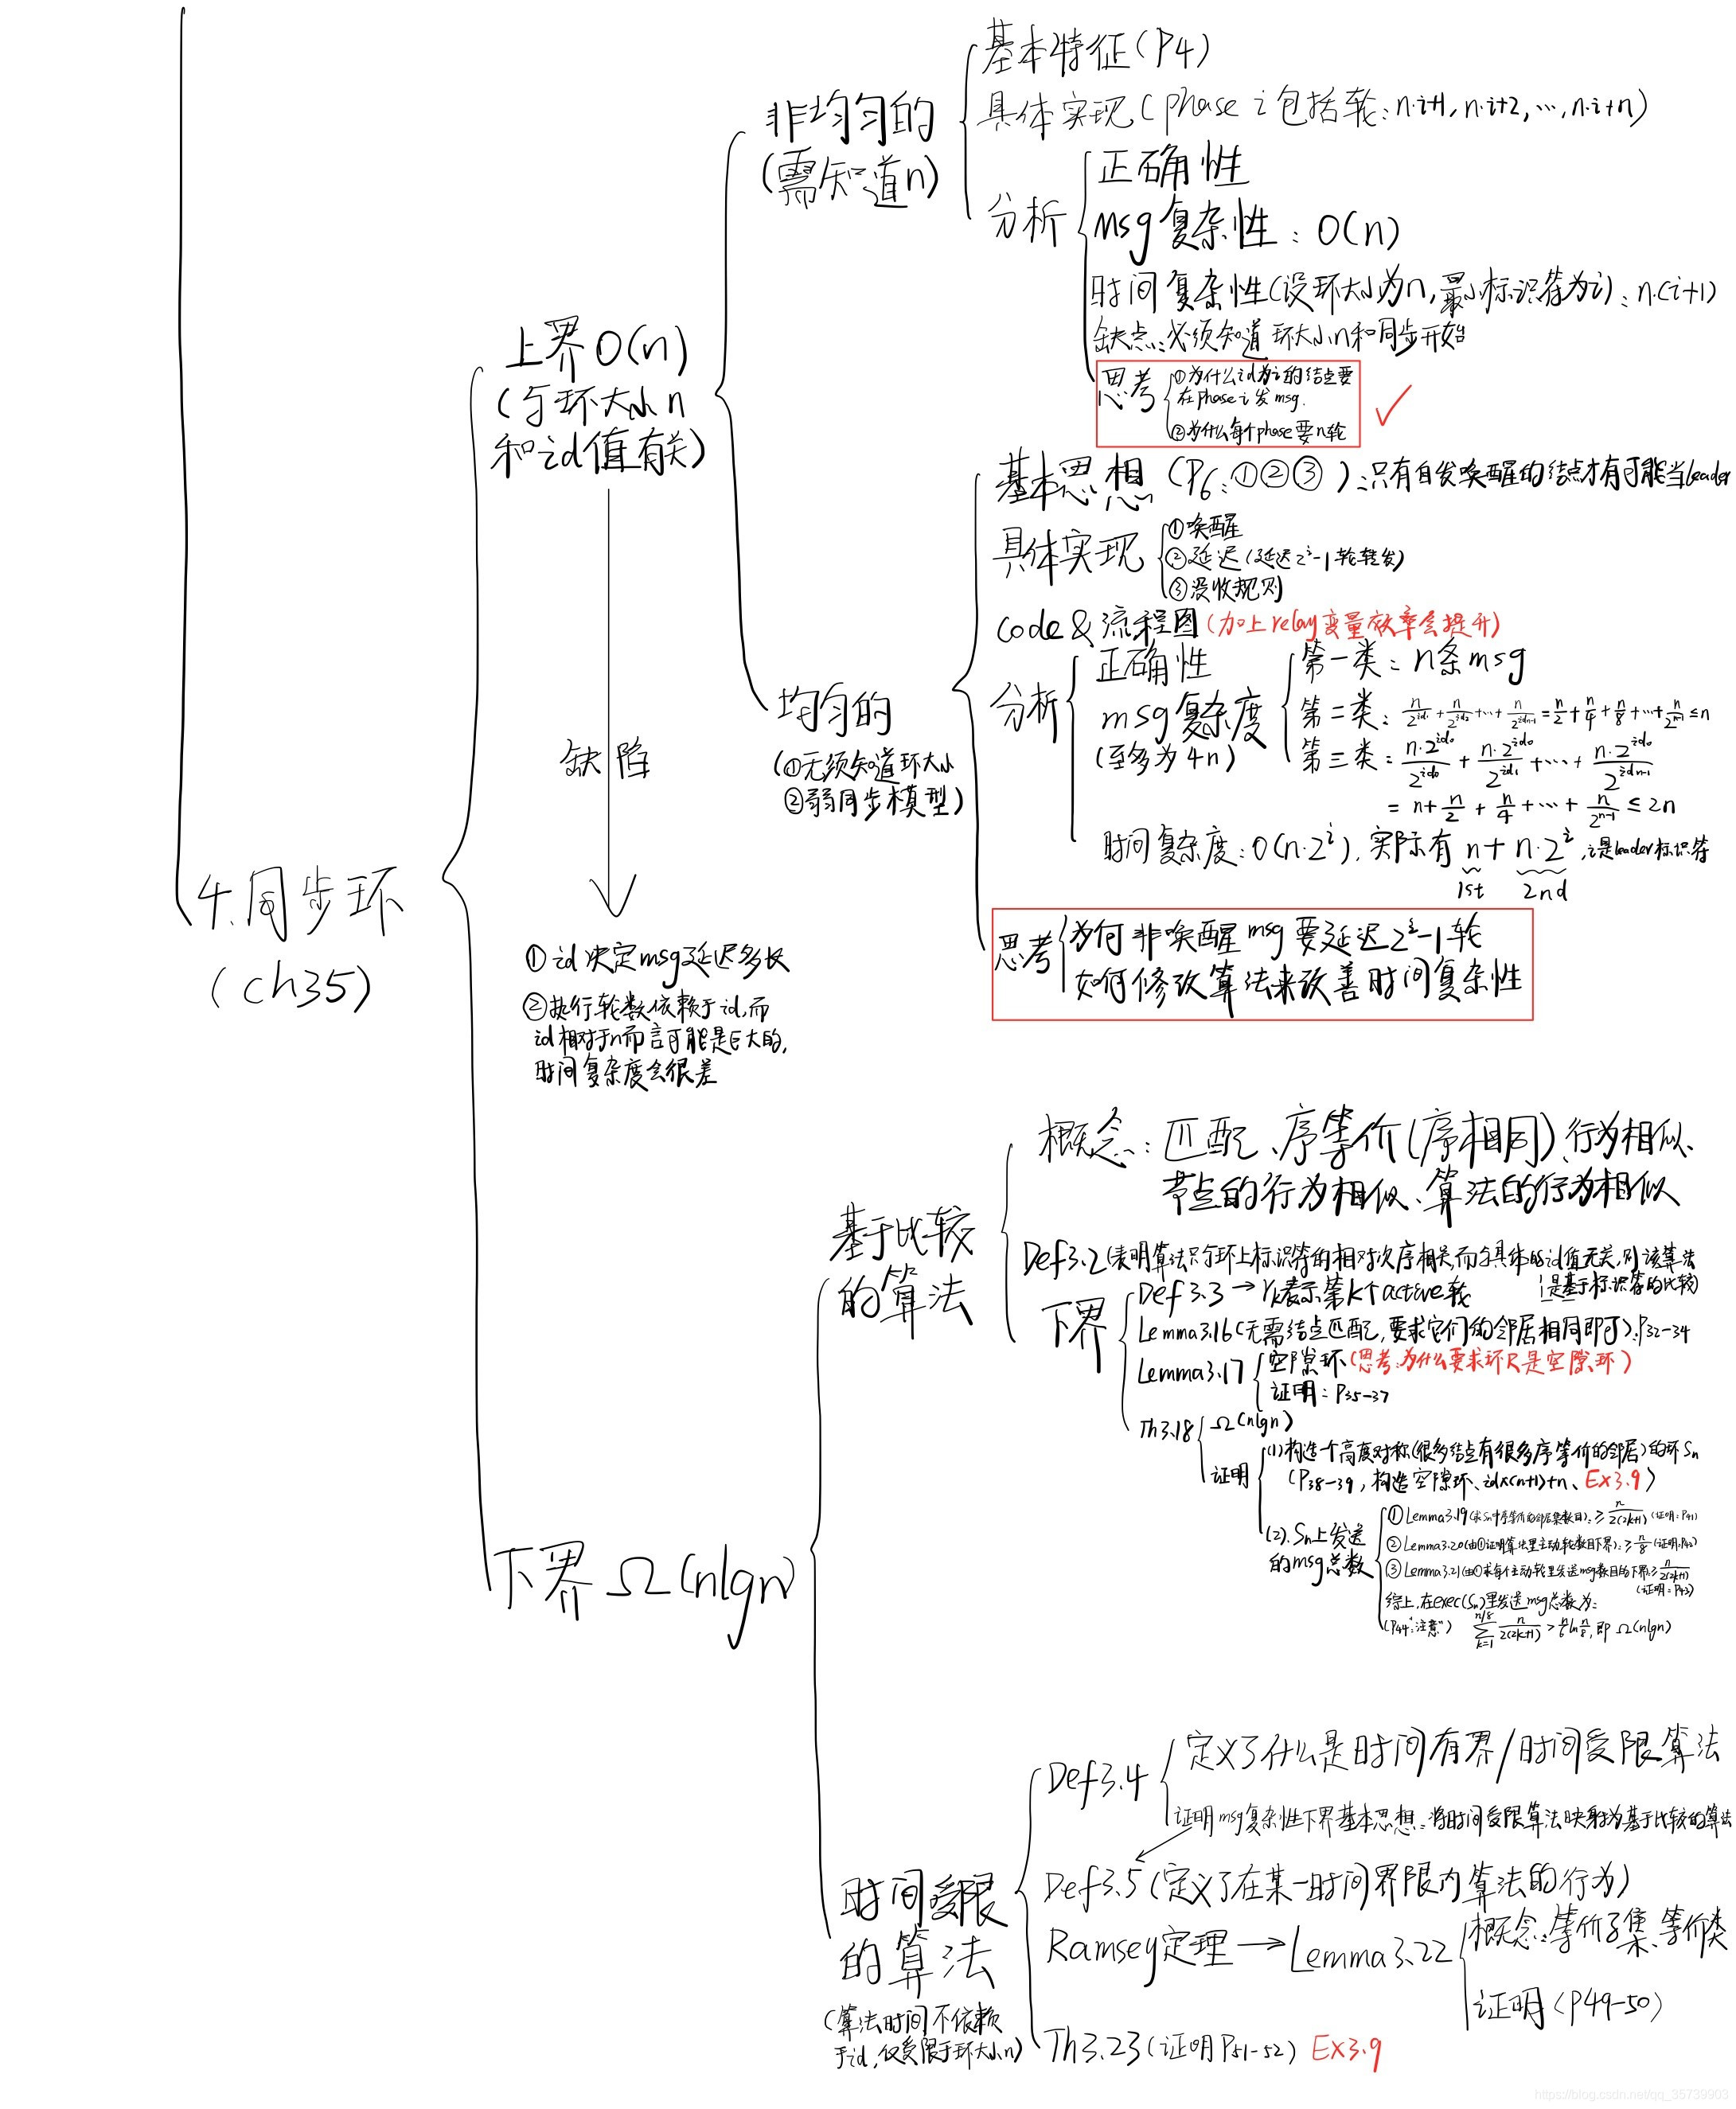 基本特征(P4)
非均匀的
(需知道n)
具体实现(phase i 包括轮:n·i+1,n·i+2,…,n·i+n)
分析
正确性
msg复杂性:O(n)
时间复杂性(设环大小为n,最小标识符为i):n·(i+1)
缺点:必须知道环大小n和同步开始
思考
①为什么id为i的结点要
在phase i 发msg.
②为什么每个phase要n轮
上界O(n)
(与环大小n
和id值有关)
基本思想(P6:①②③):只有自发唤醒的结点才有可能当leader
具体实现
①唤醒
②延迟(延迟2^i-1轮转发)
③没收规则
code&流程图(加上relay变量效率会提升)
均匀的
(①无须知道环大小
②弱同步模型)
分析
正确性
msg复杂度
(至多为4n)
第一类:n条msg
第二类:n/2^id1+n/2^id2+…+n/2^idn-1=n/2+n/4+n/8+…+n/2^n-1≤n
第三类=n·2^id0/2^id0+n·2^id0/2^id1+…+n·2^id0/2^idn-1
=n+n/2+n/4+…+n/2^n-1≤2n
时间复杂度:O(n·2^i),实际有n+n·2^i,i是leader标识符
1st 2nd
思考
为何非唤醒msg要延迟2^i-1轮
如何修改算法来改善时间复杂性
缺陷
①id决定msg延迟多长
②执行轮数依赖于id,而
id相对于n而言可能是巨大的,
时间复杂度会很差
4.同步环
(ch35)
下界Ω(nlgn)
基于比较
的算法
概念:匹配、序等价(序相同)、行为相似、
节点的行为相似、算法的行为相似
Def3.2(表明算法只与环上标识符的相对次序相关,而与具体的id值无关,则该算法
是基于标识符的比较)
下界
Def3.3→rk表示第k个active轮
Lemma3.16(无需结点匹配,要求它们的邻居相同即可):P32-34
Lemma3.17
空隙环(思考:为什么要求环R是空隙环)
证明:P35-37
Th3.18
Ω(nlgn)
证明
(1)构造一个高度对称(很多结点有很多序等价的邻居)的环Sn
(P38-39,构造空隙环、idx(n+1)+n、Ex3.9)
(2).Sn上发送
的msg总数
①Lemma3.19(求Sn中序等价的邻居集数目):≥n/2(2k+1)(证明:P41)
②Lemma3.20(由①证明算法里主动轮数目下界):≥n/8(证明:P42)
③Lemma3.21(由①求每个主动轮里发送msg数目的下界):≥n/2(2k+1)
(证明:P43)
综上,在exec(Sn)里发送msg总数为:
(P44"注意") n/8∑k=1 n/2(2k+1)>n/6 ln n/8,即Ω(nlgn)
时间受限
的算法
(算法时间不依赖
于id,仅受限于环大小n)
Def3.4
定义了什么是时间有界/时间受限算法
证明msg复杂性下界基本思想:将时间受限算法映射为基于比较的算法
Def3.5(定义了在某一时间界限内算法的行为)
Ramsey定理→Lemma3.22
概念:等价子集、等价类
证明(P49-50)
Th3.23(证明P51-52) Ex3.9
https://blog.csdn.net/qq_35739903